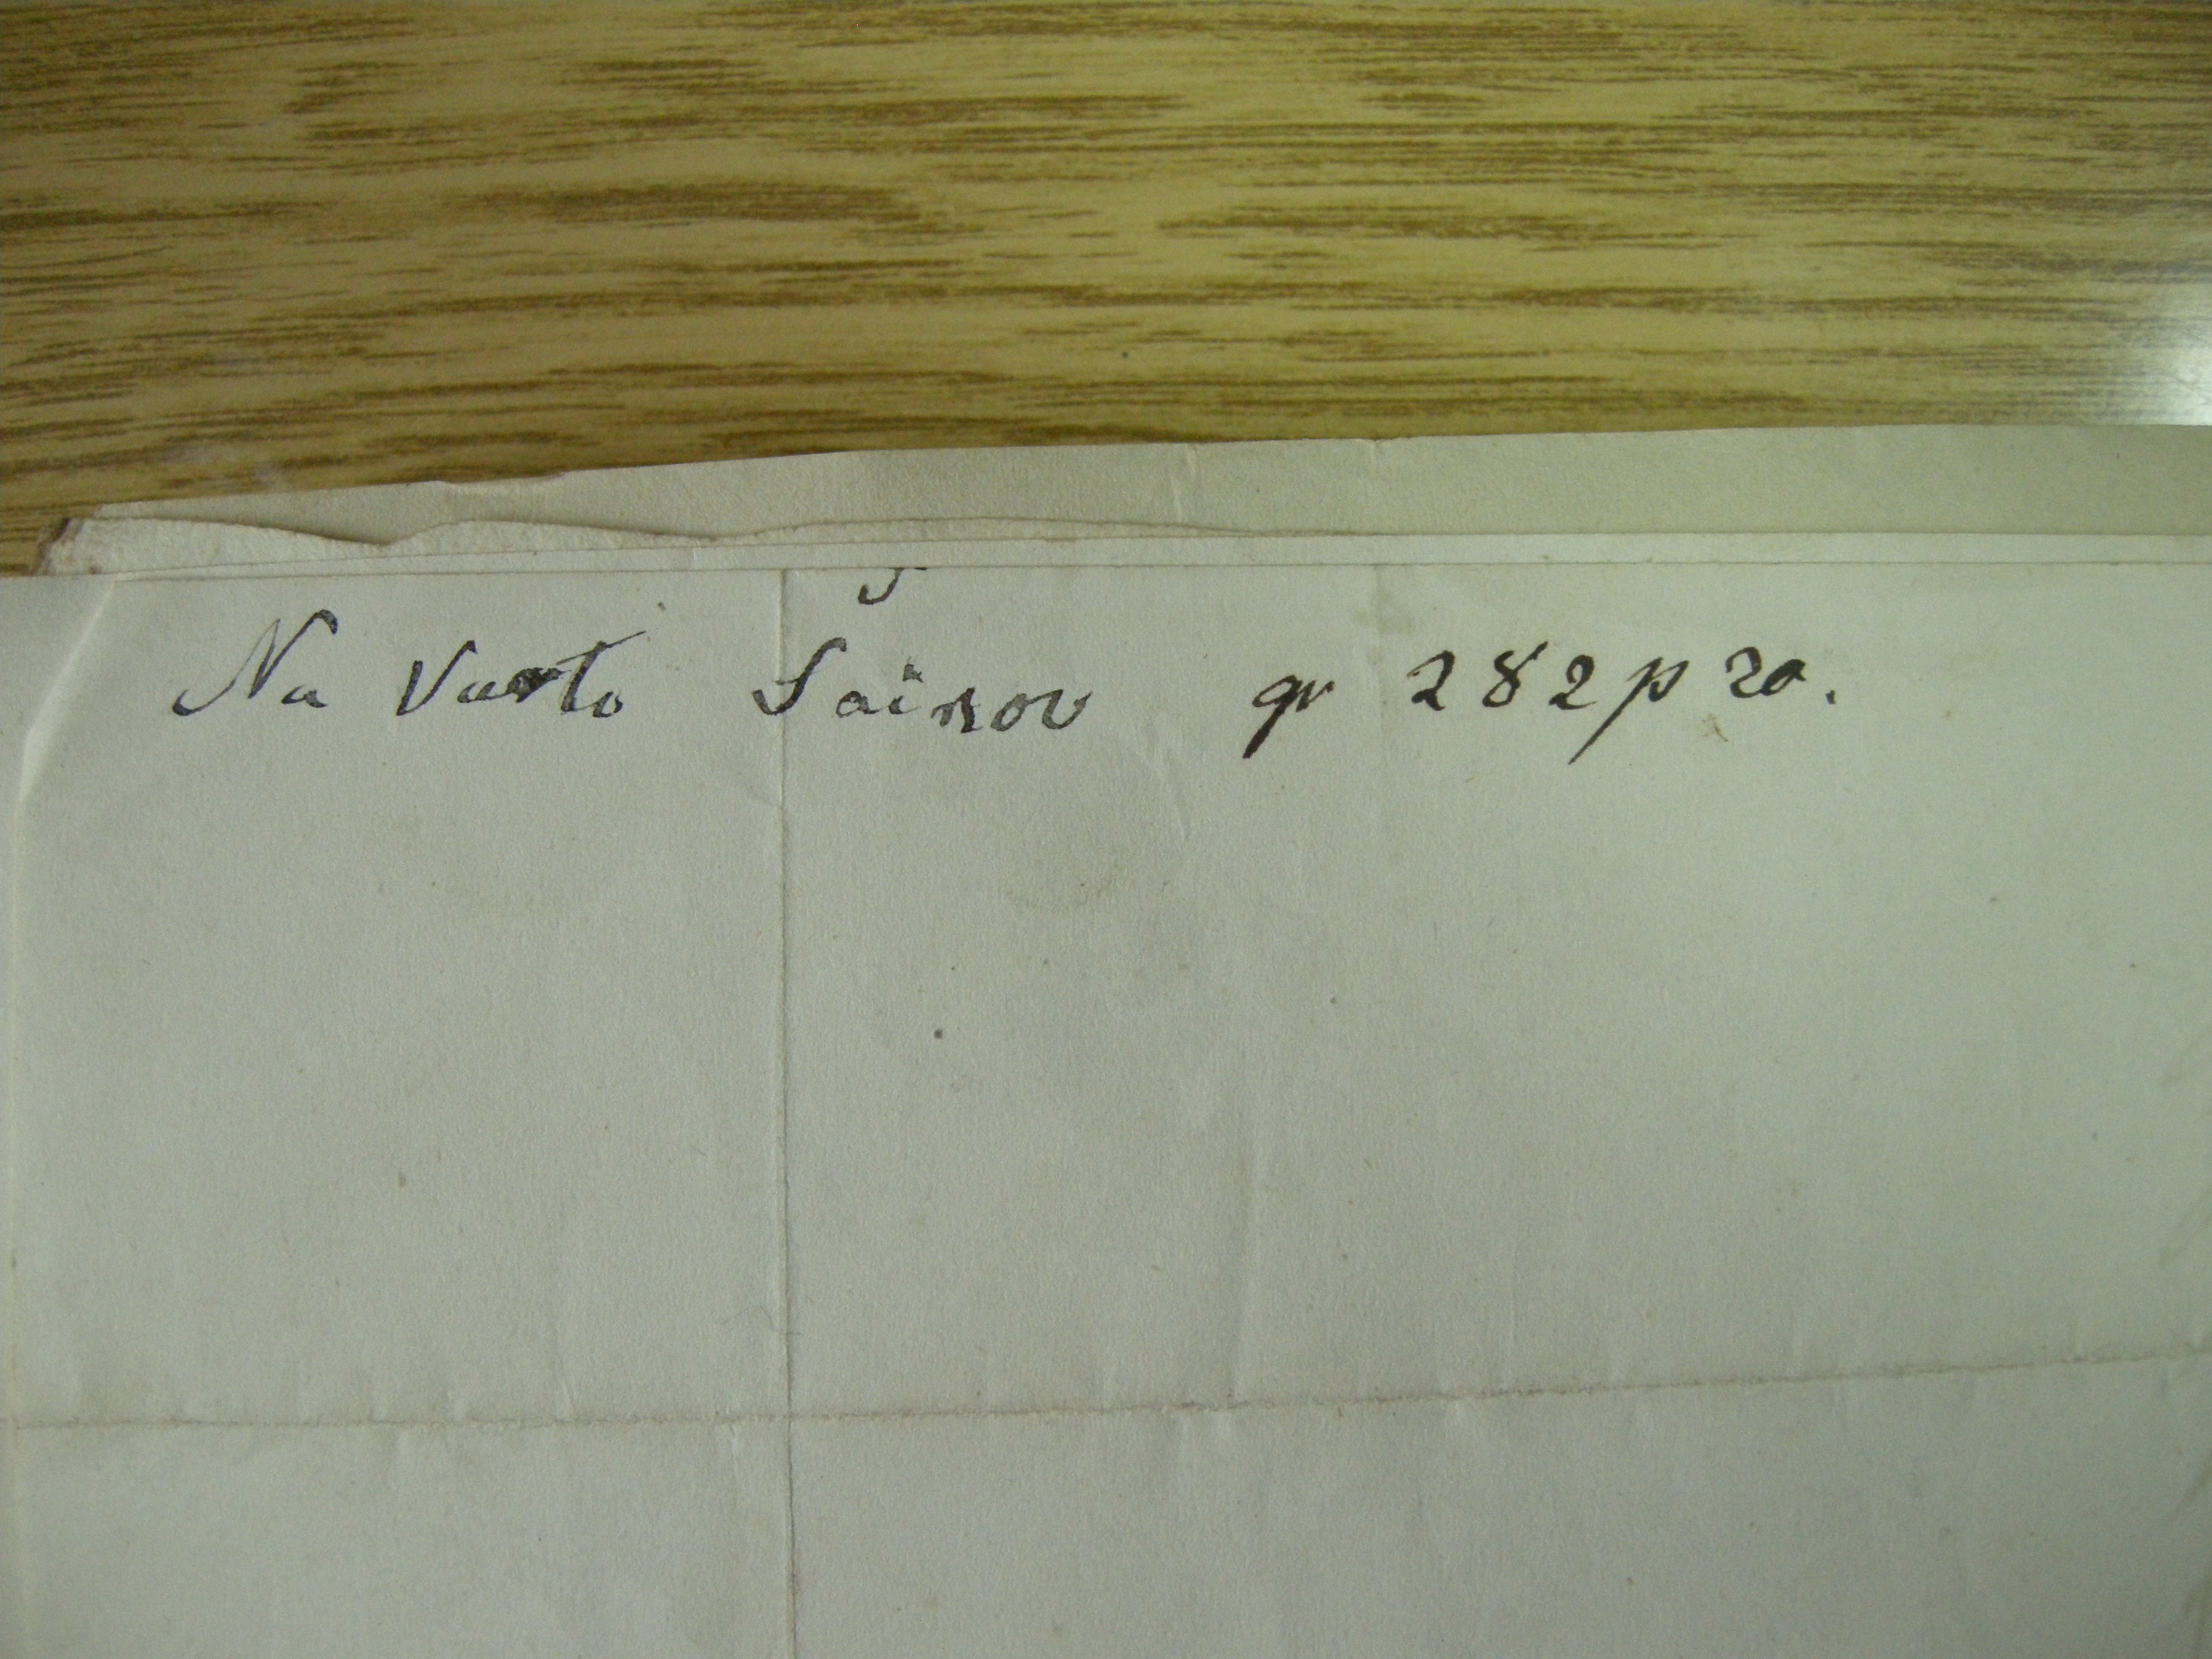 Na Vasto Šainov gr 282 p 20.